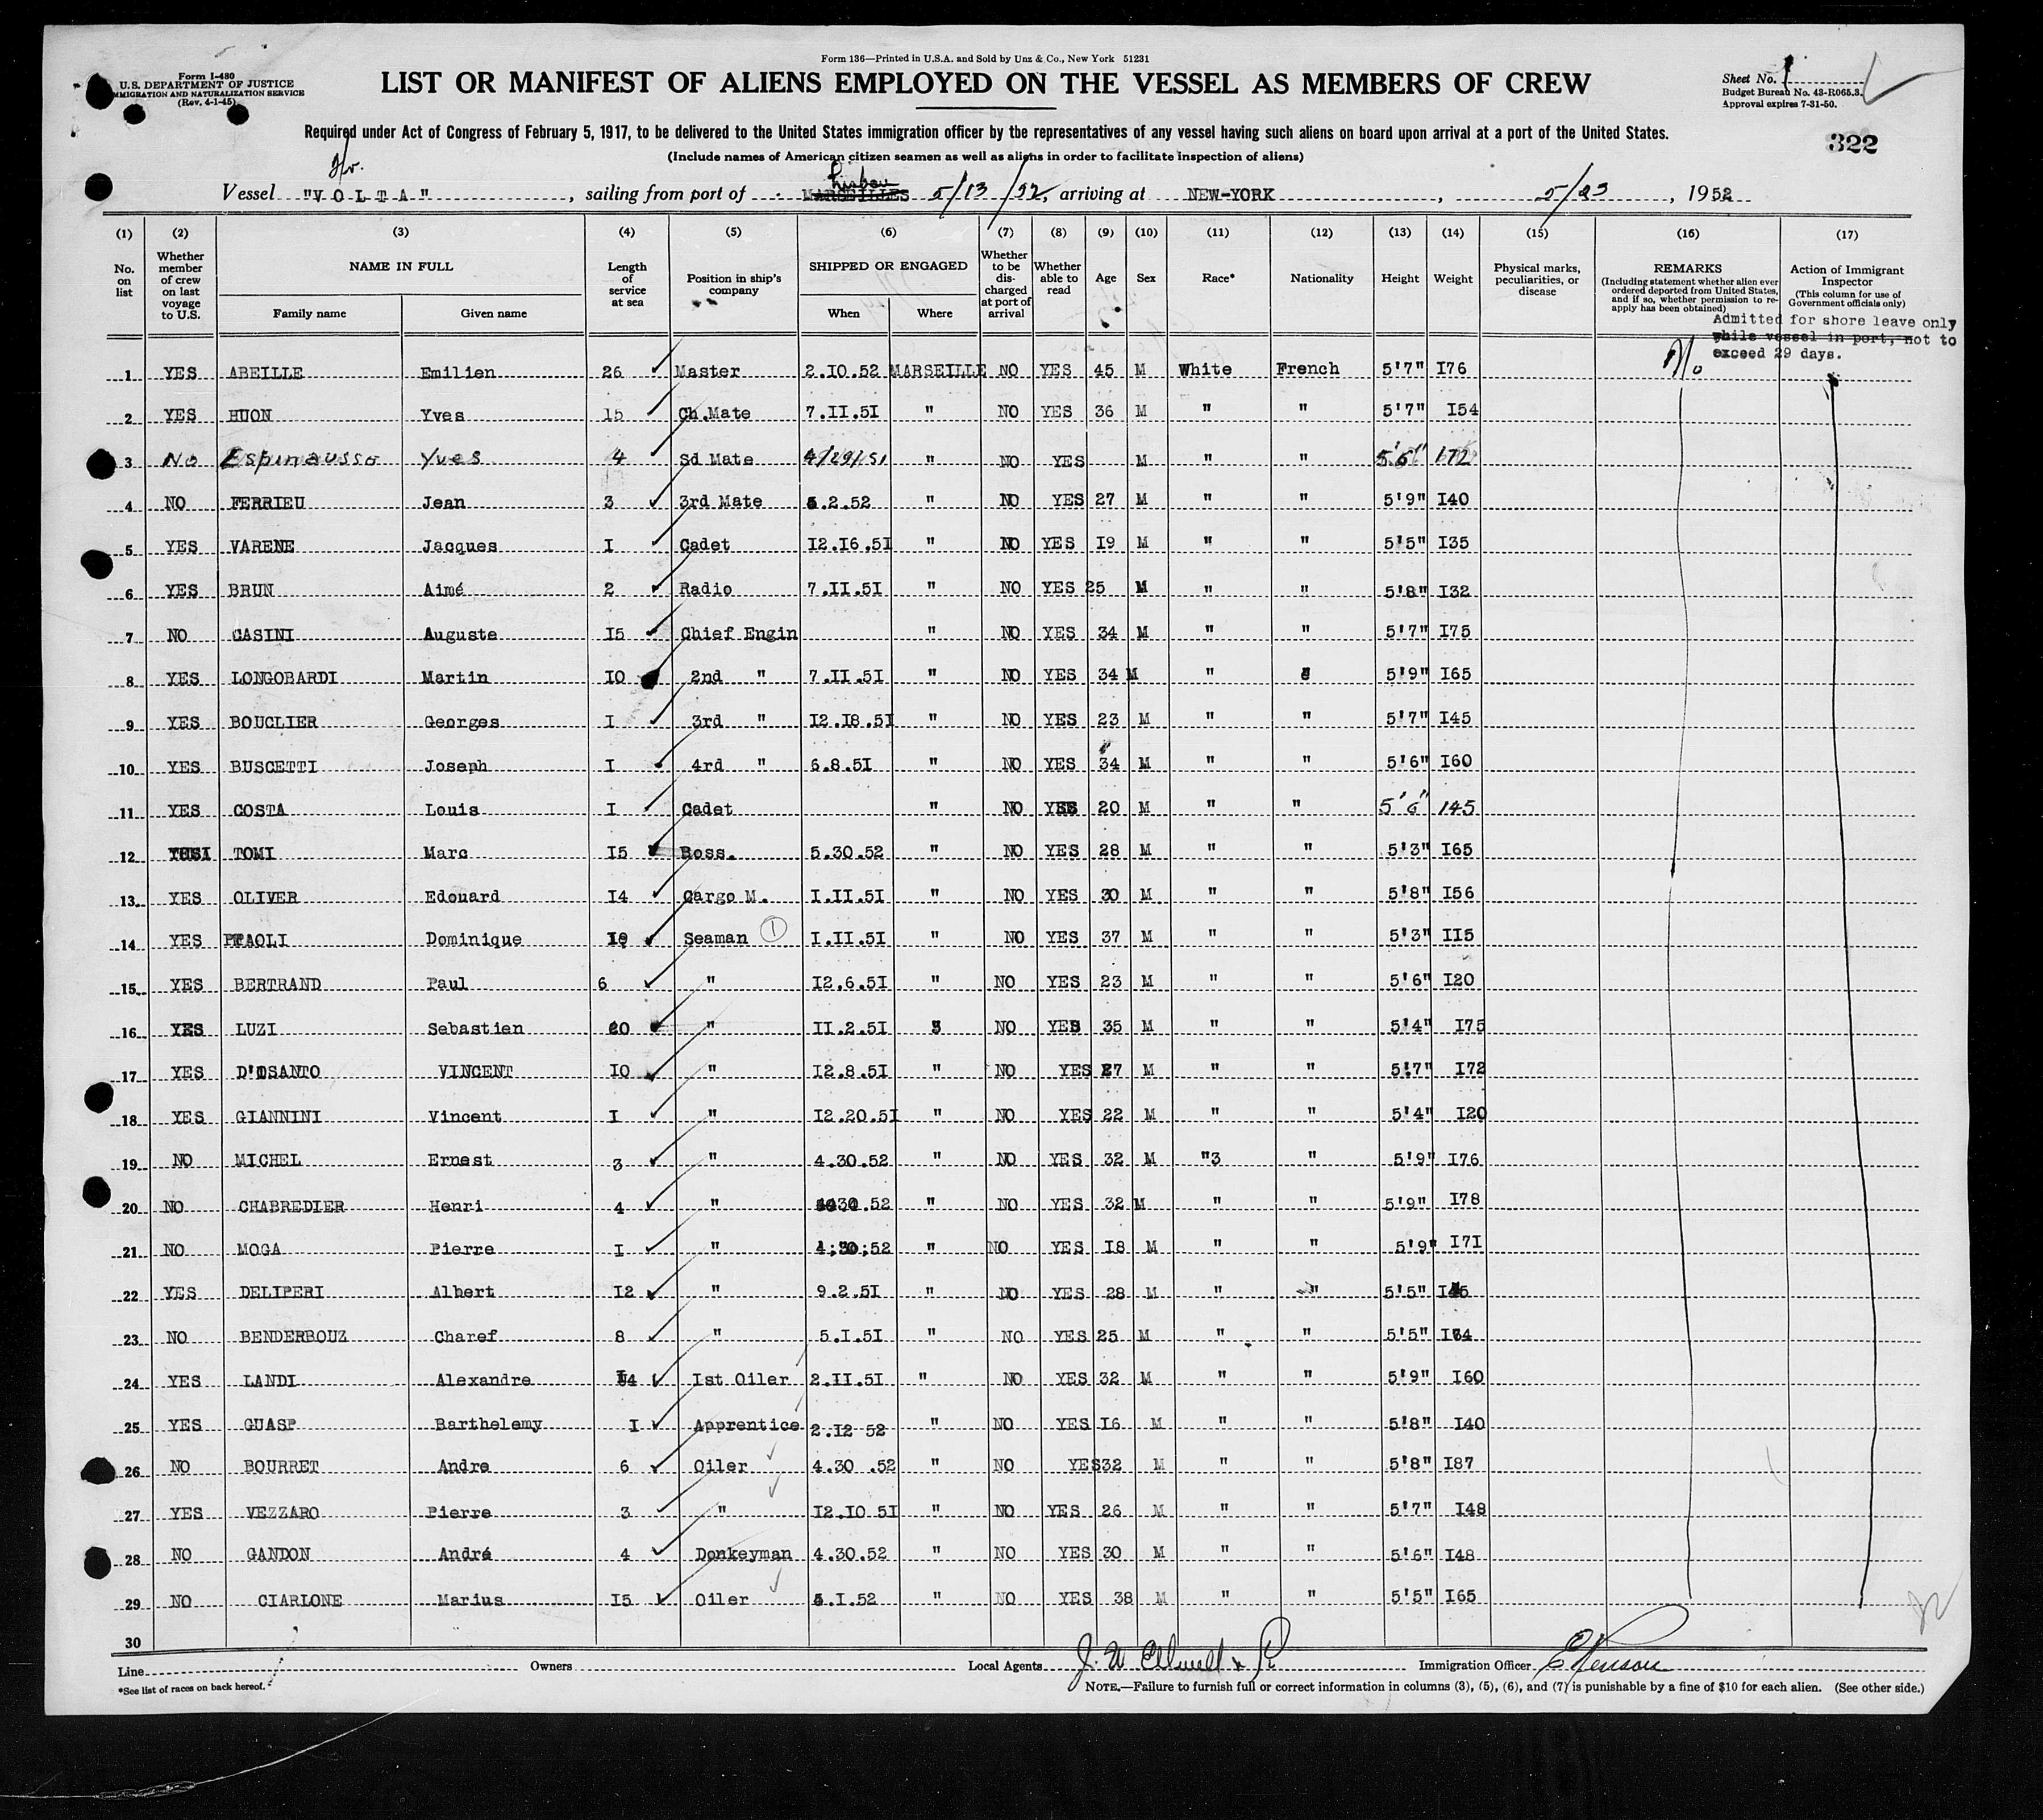 Form I-480
U.S. DEPARTMENT OF JUSTICE
IMMIGRATION AND NATURALIZATION SERVICE
(Rev. 4-1-45)
Form 136—Printed in U.S.A. and Sold by Unz & Co., New York 51231
LIST OR MANIFEST OF ALIENS EMPLOYED ON THE VESSEL AS MEMBERS OF CREW
Sheet No. 1
Budget Bureau No. 43-R065.3.
Approval expires 7-31-50.
Required under Act of Congress of February 5, 1917, to be delivered to the United States immigration officer by the representatives of any vessel having such aliens on board upon arrival at a port of the United States.
(Include names of American citizen seamen as well as aliens in order to facilitate inspection of aliens)
322
Vessel Fr. "VOLTA", sailing from port of MARSEILLES Lisbon 5/13/52, arriving at NEW-YORK, 5/23, 1952
(1) (2) (3) (4) (5) (6) (7) (8) (9) (10) (11) (12) (13) (14) (15) (16) (17)
No. on list
Whether member of crew on last voyage to U.S.
NAME IN FULL
Family name Given name
Length of service at sea
Position in ship's company
SHIPPED OR ENGAGED
When Where
Whether to be discharged at port of arrival
Whether able to read
Age Sex Race* Nationality Height Weight
Physical marks, peculiarities, or disease
REMARKS
(Including statement whether alien ever ordered deported from United States, and if so, whether permission to reapply has been obtained)
Action of Immigrant Inspector
(This column for use of Government officials only)
Admitted for shore leave only
while vessel in port, not to
exceed 29 days.
1 YES ABEILLE Emilien 26 Master 2.10.52 MARSEILLE NO YES 45 M White French 5'7" I76 No
2 YES HUON Yves 15 Ch.Mate 7.II.5I " NO YES 36 M " " 5'7" I54
3 No Espinausso Yves 4 Sd Mate 4/29/51 " NO YES M " " 5'6" 172
4 NO FERRIEU Jean 3 3rd Mate 5.2.52 " NO YES 27 M " " 5'9" I40
5 YES VARENE Jacques I Cadet I2.I6.5I " NO YES I9 M " " 5'5" I35
6 YES BRUN Aimé 2 Radio 7.II.5I " NO YES 25 M " " 5'8" I32
7 NO CASINI Auguste I5 Chief Engin " NO YES 34 M " " 5'7" I75
8 YES LONGOBARDI Martin IO 2nd " 7.II.5I " NO YES 34 M " 5'9" I65
9 YES BOUCLIER Georges I 3rd " I2.I8.5I " NO YES 23 M " " 5'7" I45
10 YES BUSCETTI Joseph I 4rd " 6.8.5I " NO YES 34 M " " 5'6" I60
11 YES COSTA Louis I Cadet " NO YES 20 M " " 5'6" 145
12 TOMI Marc I5 Boss. 5.30.52 " NO YES 28 M " " 5'3" I65
13 YES OLIVER Edouard I4 Cargo M. I.II.5I " NO YES 30 M " " 5'8" I56
14 YES PAOLI Dominique Seaman 1 I.II.5I " NO YES 37 M " " 5'3" II5
15 YES BERTRAND Paul 6 " I2.6.5I " NO YES 23 M " " 5'6" I20
16 YES LUZI Sebastien 20 " II.2.5I NO YES 35 M " " 5'4" I75
17 YES D'OSANTO VINCENT IO " I2.8.5I " NO YES 27 M " " 5'7" I72
18 YES GIANNINI Vincent I " I2.20.5I " NO YES 22 M " " 5'4" I20
19 NO MICHEL Ernest 3 " 4.30.52 " NO YES 32 M "3 " 5'9" I76
20 NO CHABREDIER Henri 4 " 30.52 " NO YES 32 M " " 5'9" I78
21 NO MOGA Pierre I " 4;30;52 " NO YES I8 M " " 5'9" I7I
22 YES DELIPERI Albert I2 " 9.2.5I " NO YES 28 M " " 5'5"
23 NO BENDERBOUZ Charef 8 " 5.I.5I " NO YES 25 M " " 5'5"
24 YES LANDI Alexandre I4 Ist Oiler 2.II.5I " NO YES 32 M " " 5'9" I60
25 YES GUASP Barthelemy I Apprentice 2.I2 52 " NO YES I6 M " " 5'8" I40
26 NO BOURRET Andre 6 Oiler 4.30 .52 " NO YES 32 M " " 5'8" I87
27 YES VEZZARO Pierre 3 " I2.IO 5I " NO YES 26 M " " 5'7" I48
28 NO GANDON André 4 Donkeyman 4.30.52 " NO YES 30 M " " 5'6" I48
29 NO CIARLONE Marius I5 Oiler 5.I.52 " NO YES 38 M " " 5'5" I65
30
Line Owners Local Agents J. W. Elwell & Immigration Officer
*See list of races on back hereof.
NOTE.—Failure to furnish full or correct information in columns (3), (5), (6), and (7) is punishable by a fine of $10 for each alien. (See other side.)